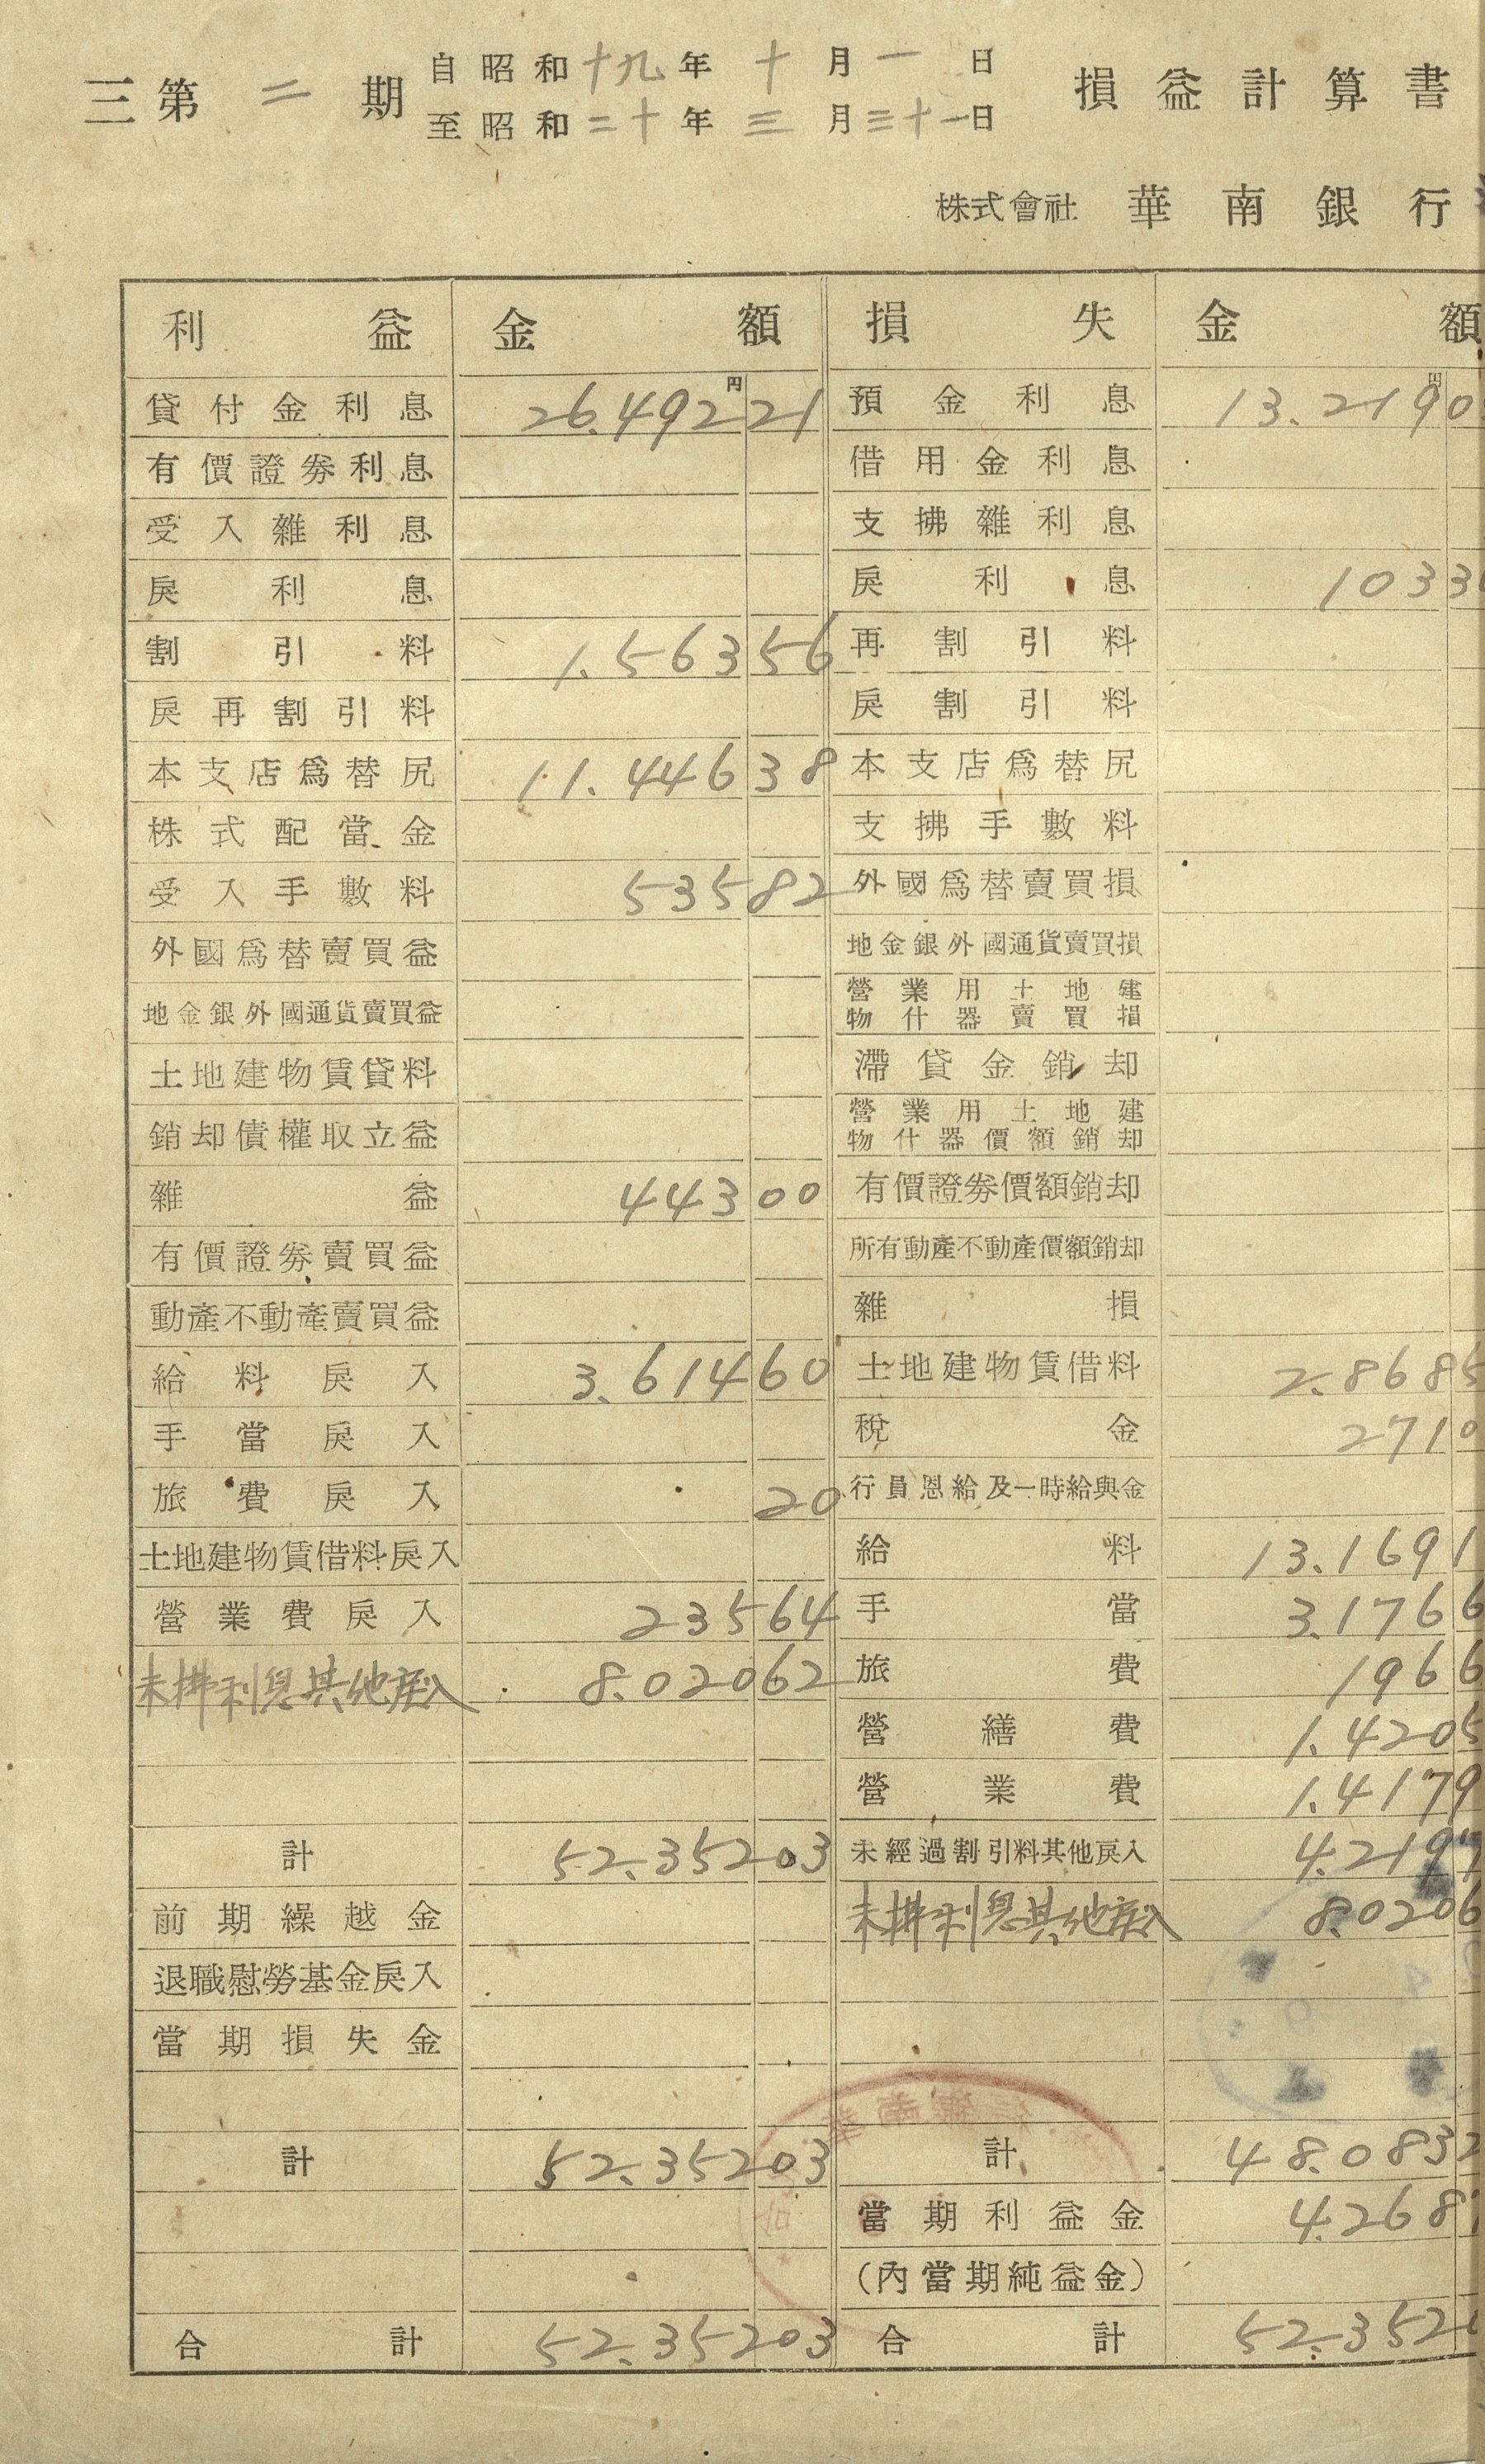 三第二期 自昭和十九年十月一日 損益計算書
至昭和二十年三月三十一日
株式會社 華南銀行
利益 金額 損失 金額
貸付金利息 26.492 21 預金利息 13.219 0
円 円
有價證券利息 借用金利息
受入雜利息 支拂雜利息
戻利息 戻利息 103 3
割引料 1.563 56 再割引料
戻再割引料 戻割引料
本支店爲替尻 11.446 38 本支店爲替尻
株式配當金 支拂手數料
受入手數料 535 82 外國爲替賣買損
外國爲替賣買益 地金銀外國通貨賣買損
地金銀外國通貨賣買益 營業用土地建物什器賣買損
土地建物賃貸料 滯貸金銷却
銷却債權取立益 營業用土地建物什器價額銷却
雜益 443 00 有價證券價額銷却
有價證券賣買益 所有動產不動產價額銷却
動產不動產賣買益 雜損
給料戻入 3.614 60 土地建物賃借料 2.868 5
手當戻入 税金 271 0
旅費戻入 20 行員恩給及一時給與金
土地建物賃借料戻入 給料 13.169 1
營業費戻入 235 64 手當 3.176 6
未拂利息其他戻入 8.020 62 旅費 196 6
營繕費 1.420 5
營業費 1.417 9
計 52.352 03 未經過割引料其他戻入 4.219
前期繰越金 未拂利息其他戻入 8.020 6
退職慰勞基金戻入
當期損失金
計 52.352 03 計 48.083 2
當期利益金 4.268
(內當期純益金)
合計 52.352 03 合計 52.352